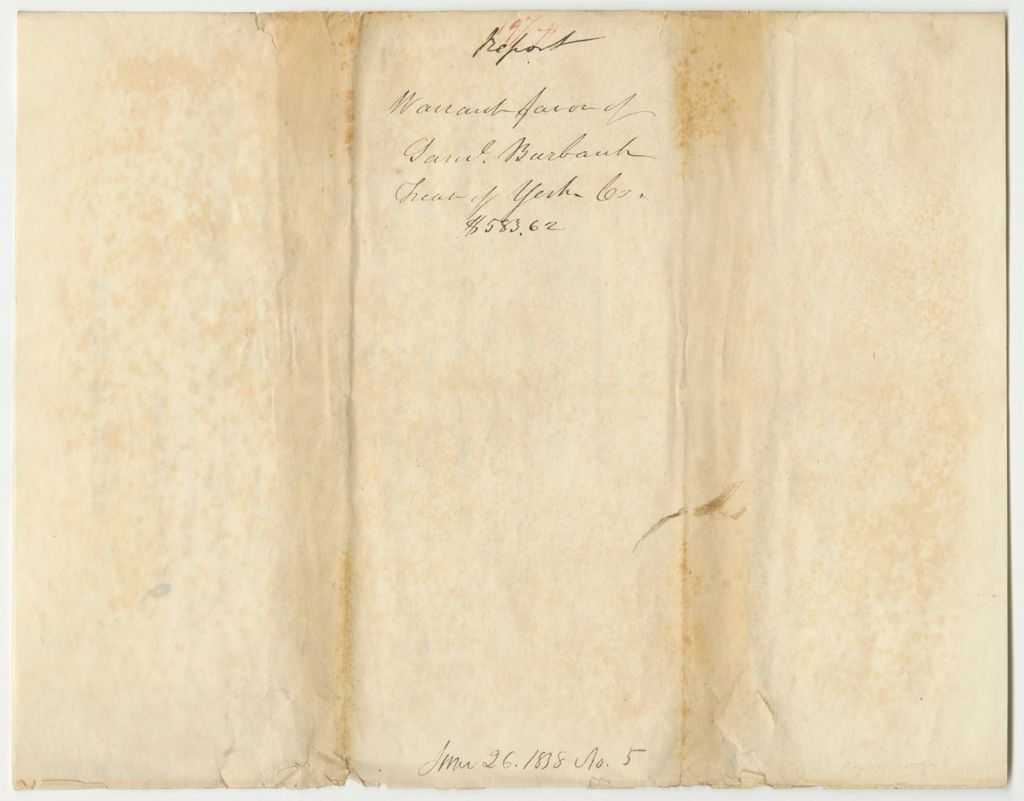 Report
Warrant favor of
Saml. Burbank
Treas of York Co.
$583.62
June 26. 1838 No. 5